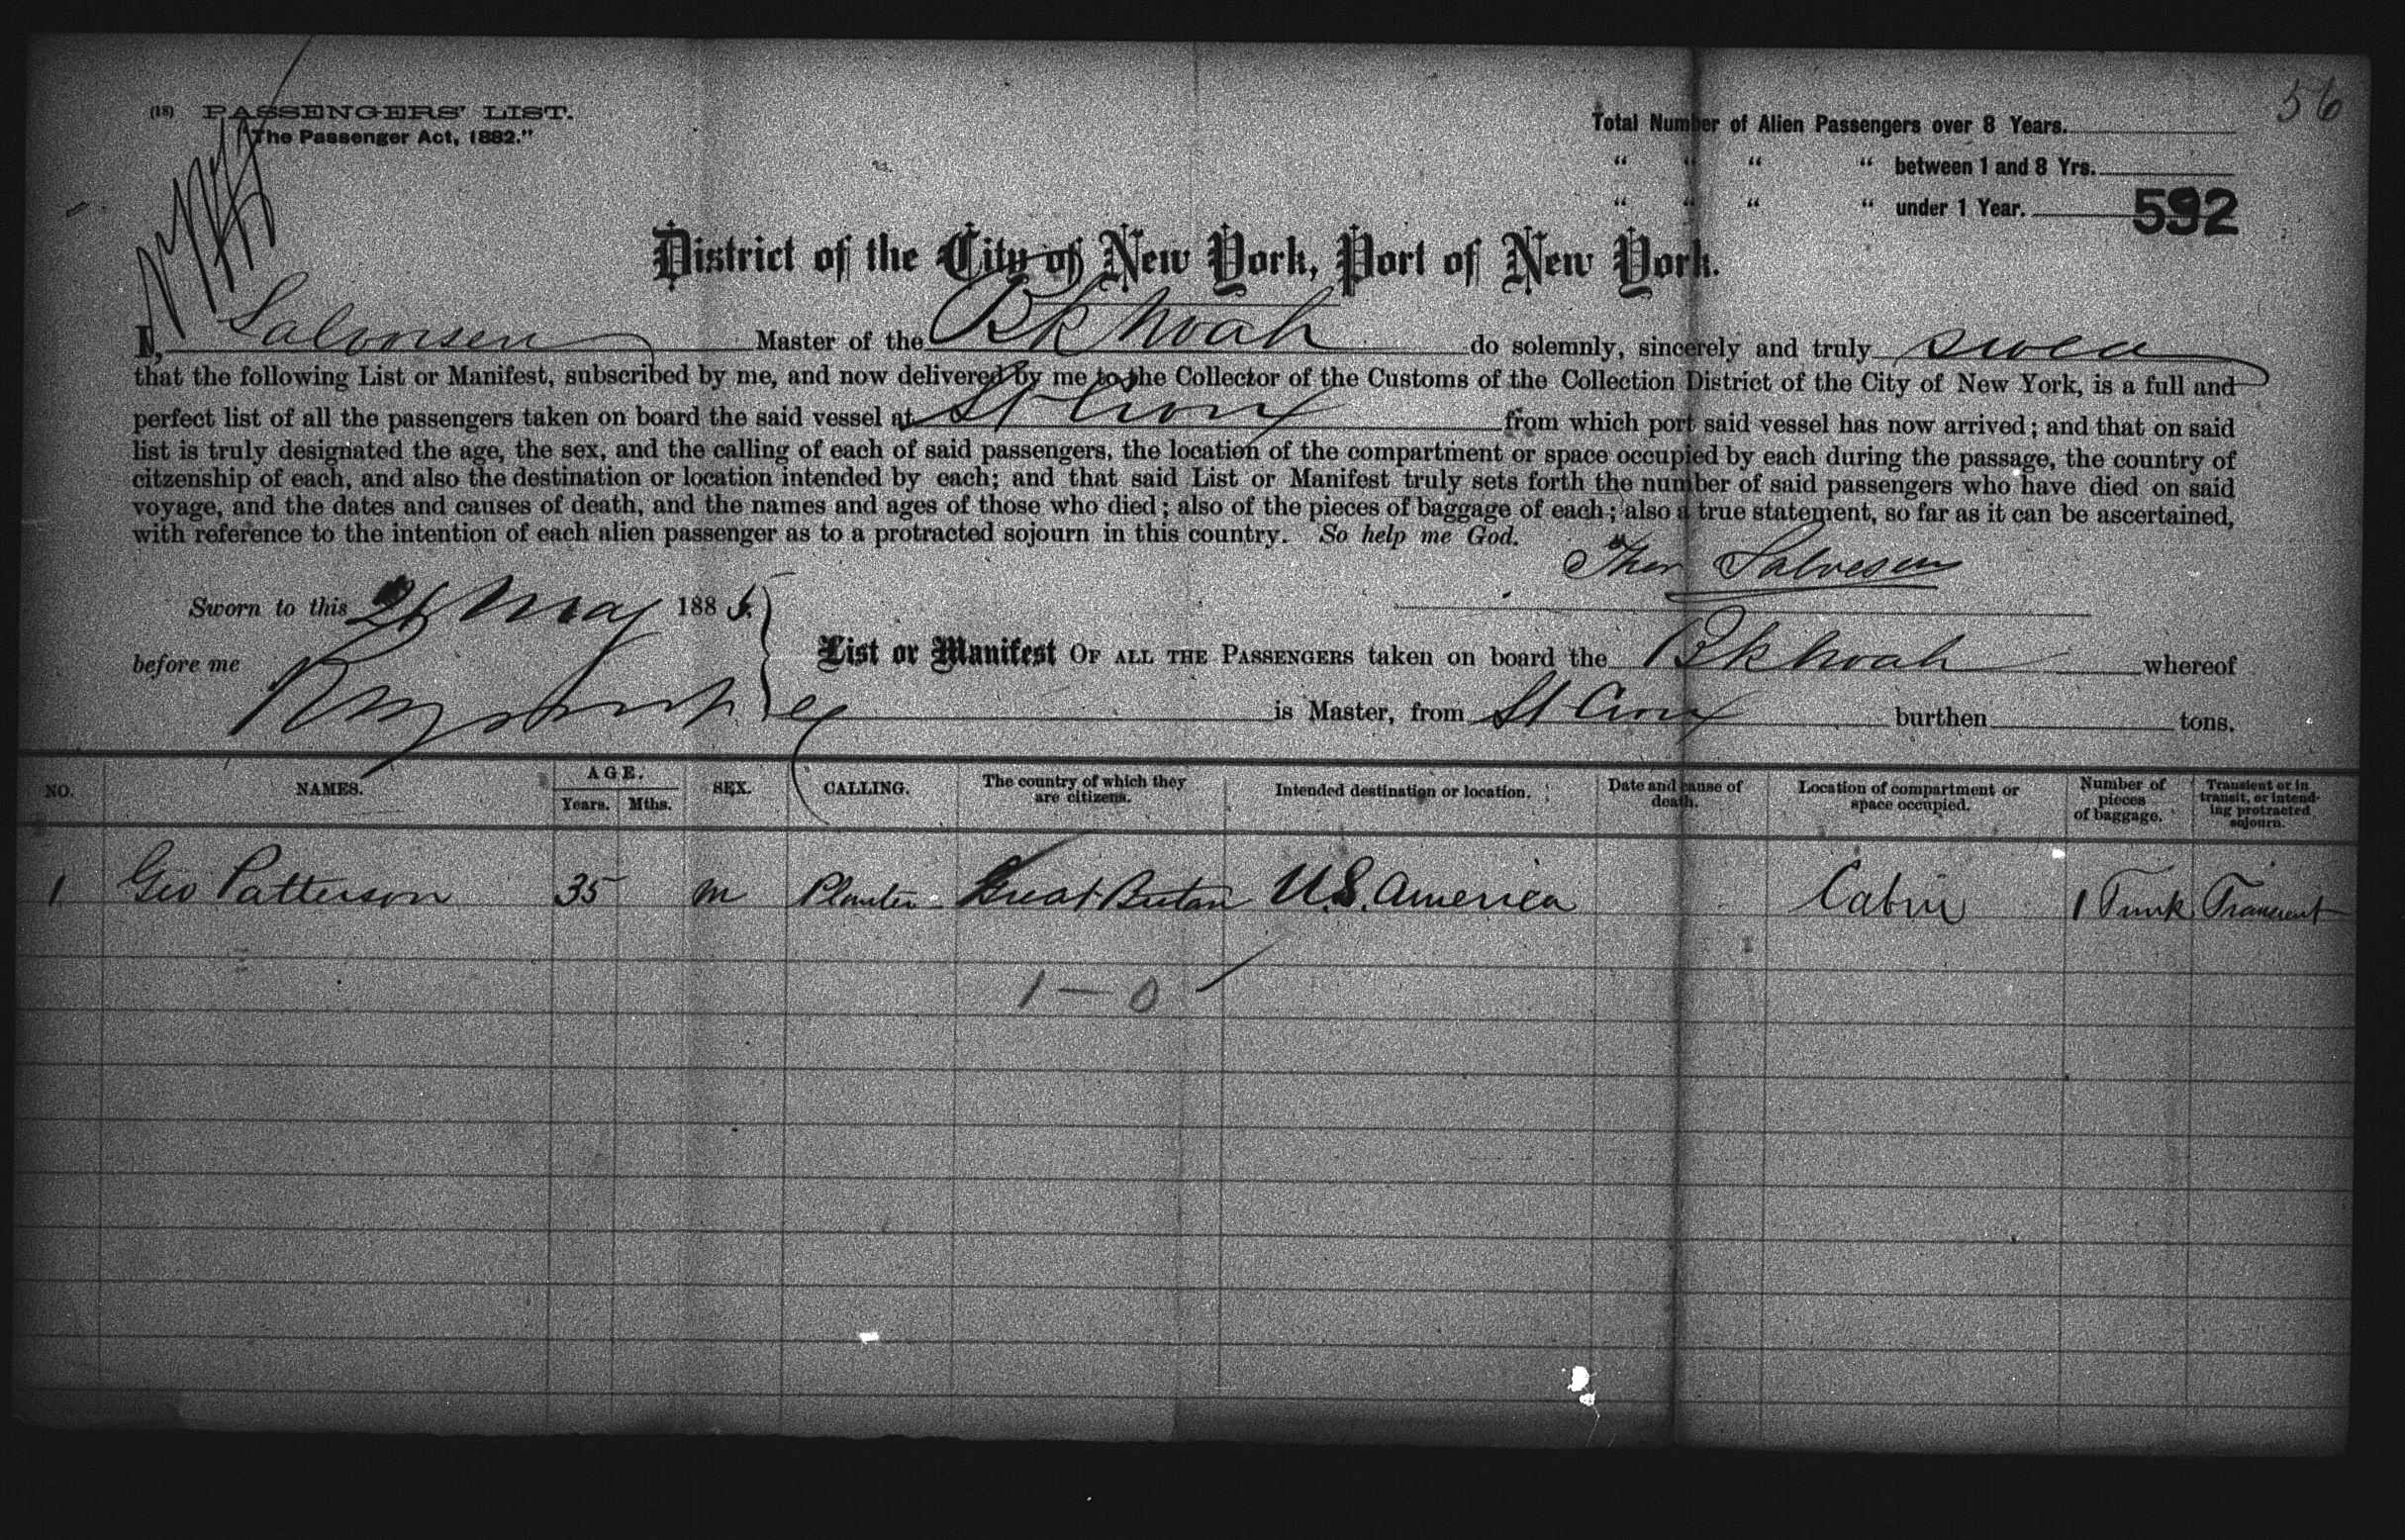 56
(18) PASSENGERS' LIST.
"The Passenger Act, 1882."
Total Number of Alien Passengers over 8 Years.
" " " " between 1 and 8 Yrs.
" " " " under 1 Year.
592
District of the City of New York, Port of New York.
I, Salvorsen Master of the Bk Noah do solemnly, sincerely and truly swear
that the following List or Manifest, subscribed by me, and now delivered by me to the Collector of the Customs of the Collection District of the City of New York, is a full and
perfect list of all the passengers taken on board the said vessel at St Croix from which port said vessel has now arrived; and that on said
list is truly designated the age, the sex, and the calling of each of said passengers, the location of the compartment or space occupied by each during the passage, the country of
citzenship of each, and also the destination or location intended by each; and that said List or Manifest truly sets forth the number of said passengers who have died on said
voyage, and the dates and causes of death, and the names and ages of those who died; also of the pieces of baggage of each; also a true statement, so far as it can be ascertained,
with reference to the intention of each alien passenger as to a protracted sojourn in this country. So help me God.
Salvesen
Sworn to this 21 May 1885
before me
List or Manifest OF ALL THE PASSENGERS taken on board the Bk Noah whereof
is Master, from St Croix burthen tons.
NO. NAMES. AGE. Years. Mths. SEX. CALLING. The country of which they are citizens. Intended destination or location. Date and cause of death. Location of compartment or space occupied. Number of pieces of baggage. Transient or in transit, or intending protracted sojourn.
1 Geo Patterson 35 m Planter Great Britain U.S. America Cabin 1 Trunk Transient
1 — 0